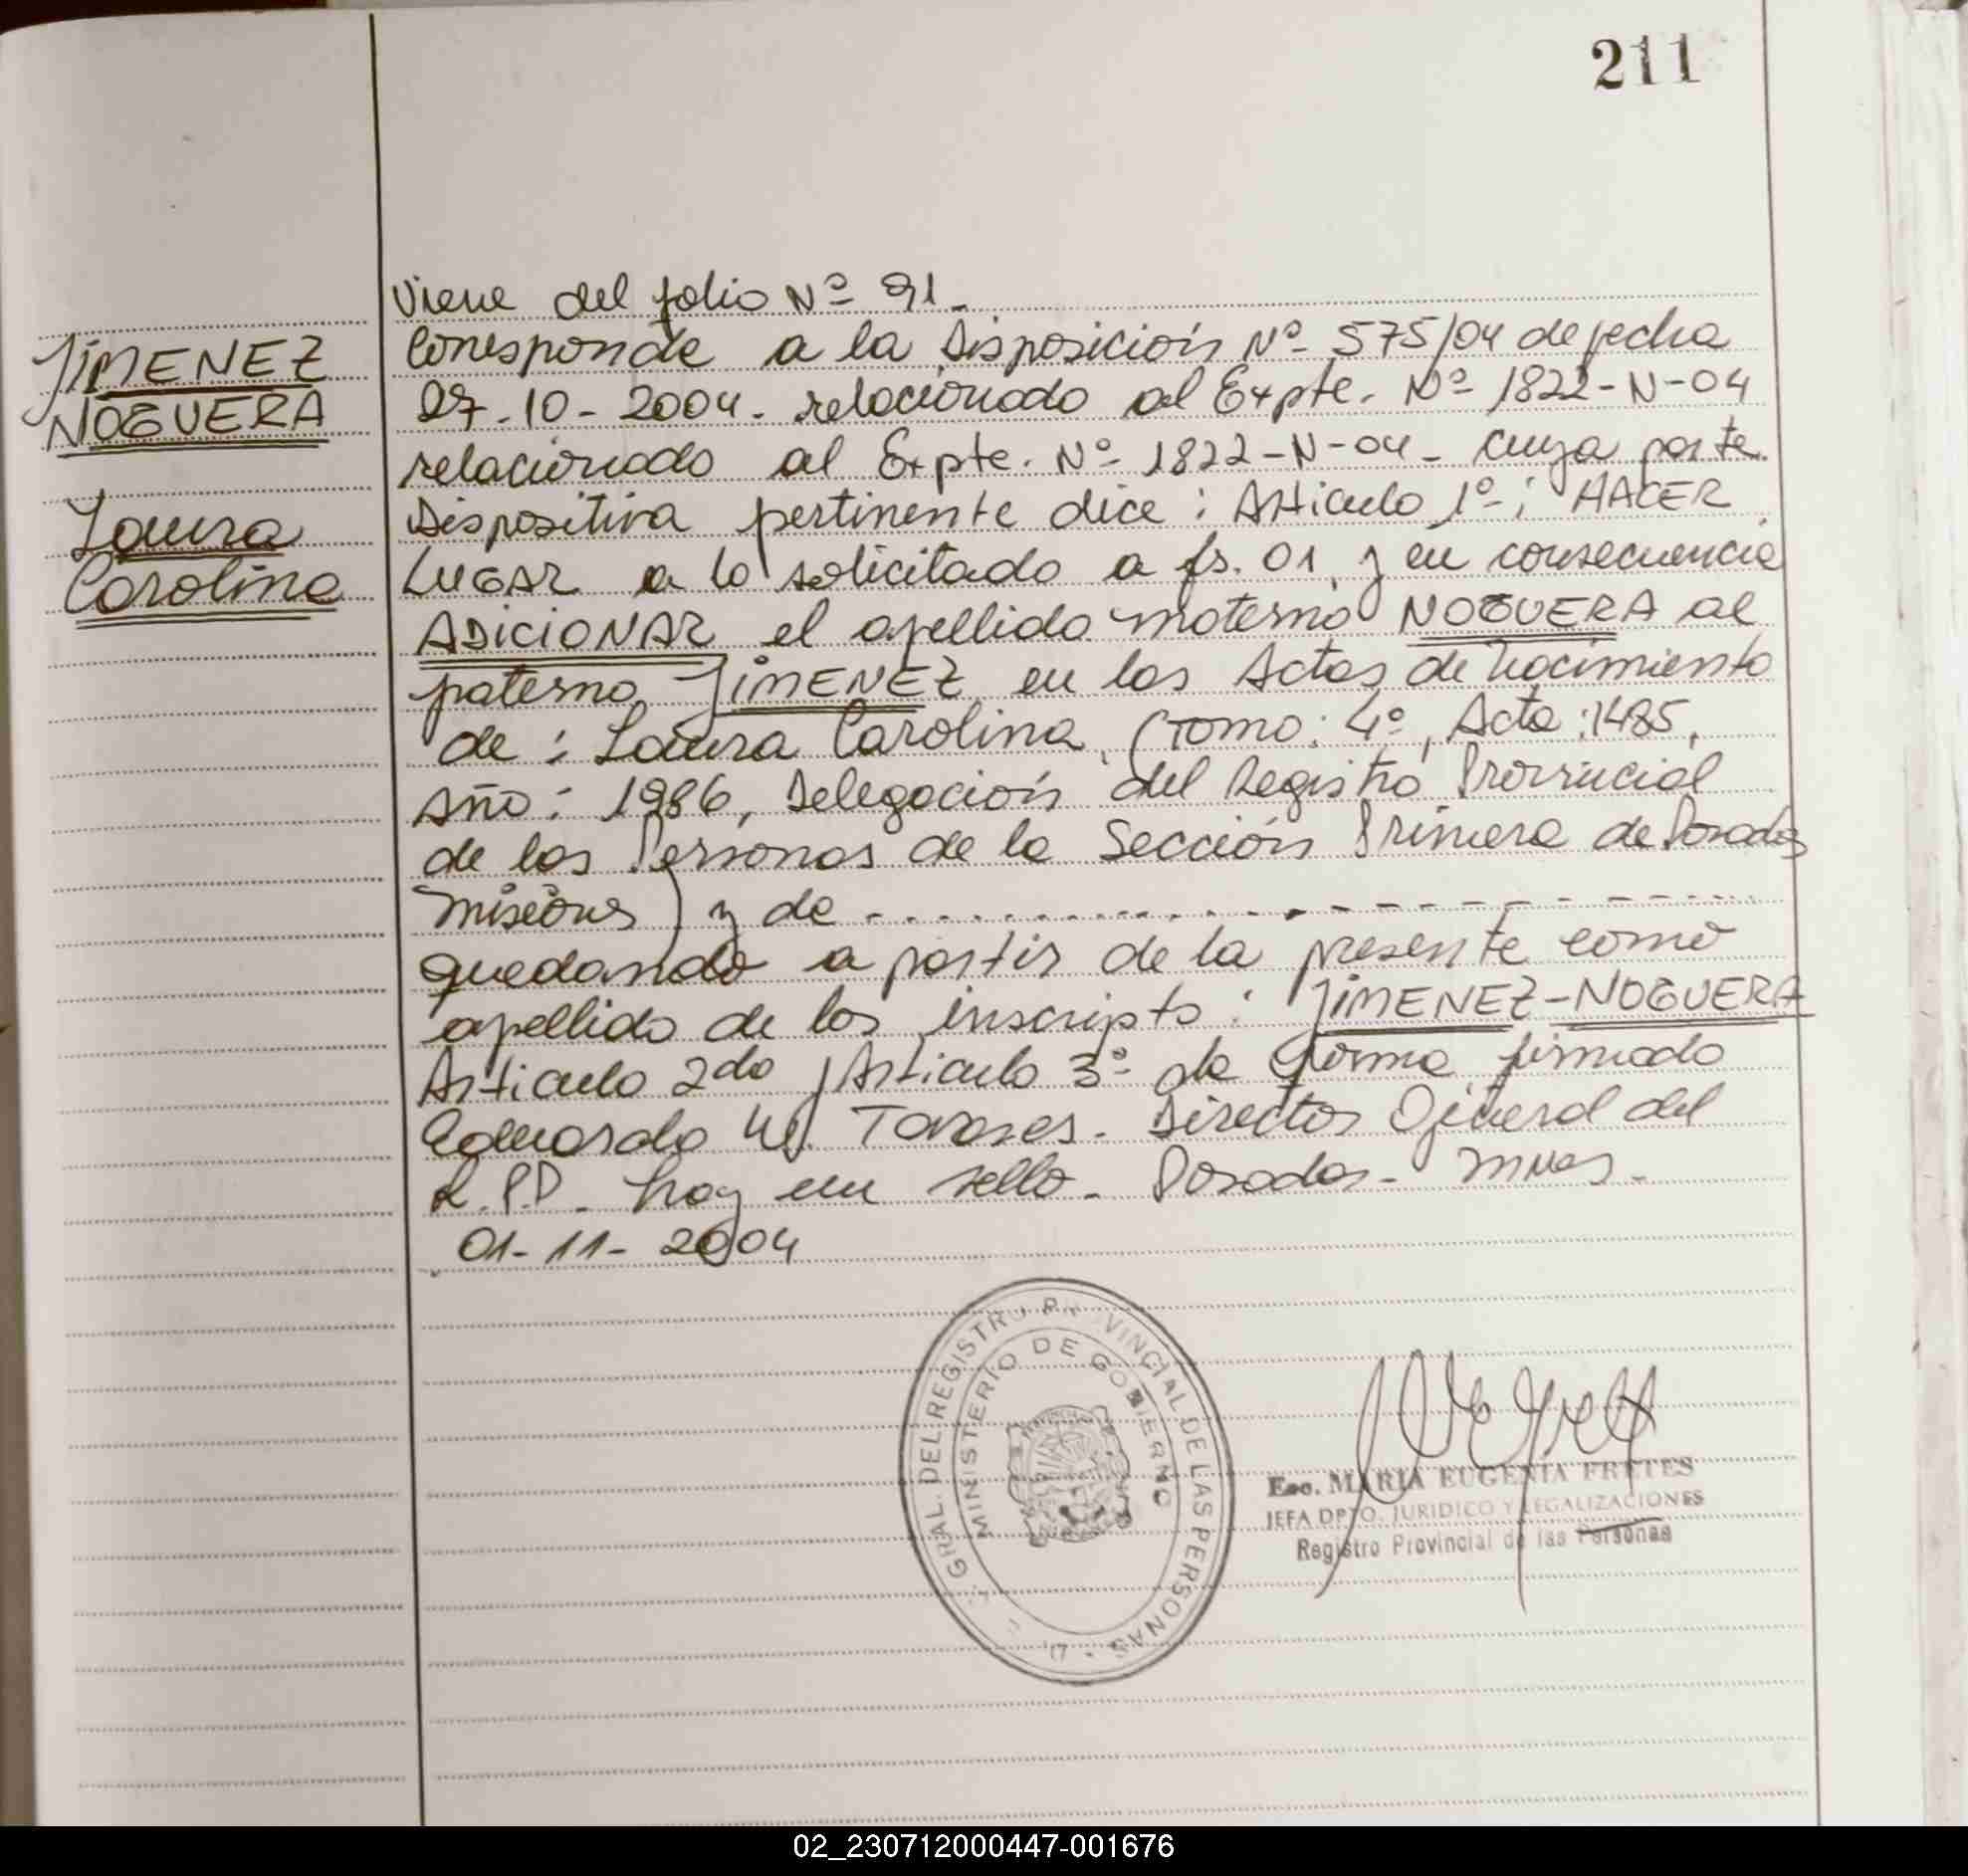 211
Viene del folio Nº 91.
JIMENEZ
NOGUERA
Laura
Carolina
Corresponde a la Disposición Nº 575/04 de fecha
27-10-2004. relacionado al Expte. Nº 1822-N-04
relacionado al Expte. Nº 1822-N-04 - cuya parte
Dispositiva pertinente dice: Articulo 1º: HACER
LUGAR a lo solicitado a fs. 01, y en consecuencia
ADICIONAR el apellido materno NOGUERA al
paterno JIMENEZ en las Actas de nacimiento
de: Laura Carolina, (Tomo: 4º, Acta: 1485,
Año: 1986, Delegación del Registro Provincial
de las Personas de la Sección Primera de Posadas
Misiones) y de - - - - - - - - - -
quedando a partir de la presente como
apellido de los inscripto: JIMENEZ-NOGUERA
Articulo 2do y Articulo 3º de forma firmado
Eduardo Tavares. Director General del
R.P.P. hay un sello. Posadas - Mnes.
01-11-2004
GRAL. DEL REGISTRO PROVINCIAL DE LAS PERSONAS
MINISTERIO DE GOBIERNO
Esc. MARIA EUGENIA FRETES
JEFA DPTO. JURIDICO Y LEGALIZACIONES
Registro Provincial de las Personas
02_230712000447-001676